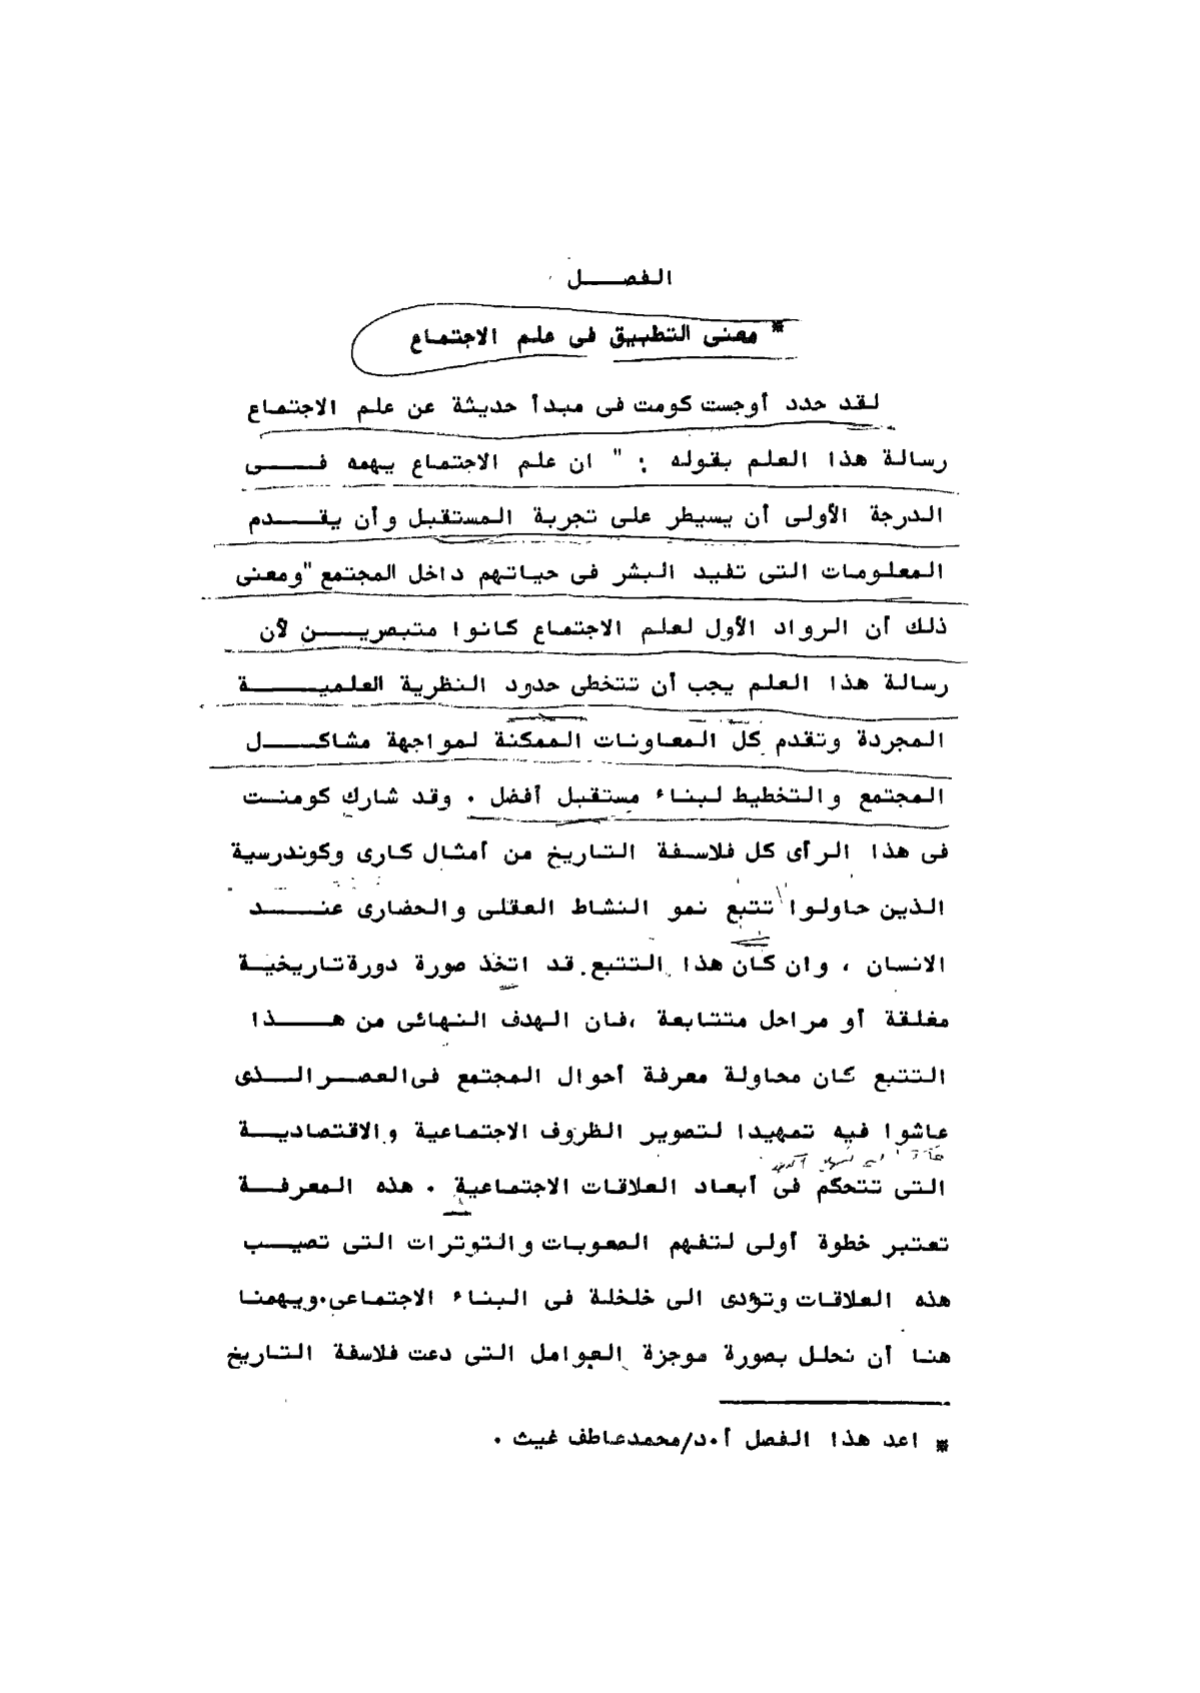 الفصل
* معنى التطبيق فى علم الاجتماع
لقد حدد أوجست كومت فى مبدأ حديثة عن علم الاجتماع
رسالة هذا العلم بقوله : " ان علم الاجتماع يهمه فى
الدرجة الأولى أن يسيطر على تجربة المستقبل وأن يقدم
المعلومات التى تفيد البشر فى حياتهم داخل المجتمع "ومعنى
ذلك أن الرواد الأول لعلم الاجتماع كانوا متبصرين لأن
رسالة هذا العلم يجب أن تتخطى حدود النظرية العلمية
المجردة وتقدم كل المعاونات الممكنة لمواجهة مشاكل
المجتمع والتخطيط لبناء مستقبل أفضل . وقد شارك كومنت
فى هذا الرأى كل فلاسفة التاريخ من أمثال كارى وكوندرسية
الذين حاولوا تتبع نمو النشاط العقلى والحضارى عند
الانسان ، وان كان هذا التتبع قد اتخذ صورة دورة تاريخية
مغلقة أو مراحل متتابعة ،فان الهدف النهائى من هذا
التتبع كان محاولة معرفة أحوال المجتمع فى العصر الذى
عاشوا فيه تمهيدا لتصوير الظروف الاجتماعية والاقتصادية
التى تتحكم فى أبعاد العلاقات الاجتماعية . هذه المعرفة
تعتبر خطوة أولى لتفهم الصعوبات والتوترات التى تصيب
هذه العلاقات وتؤدى الى خلخلة فى البناء الاجتماعى.ويهمنا
هنا أن نحلل بصورة موجزة العوامل التى دعت فلاسفة التاريخ
* اعد هذا الفصل أ.د/محمد عاطف غيث .